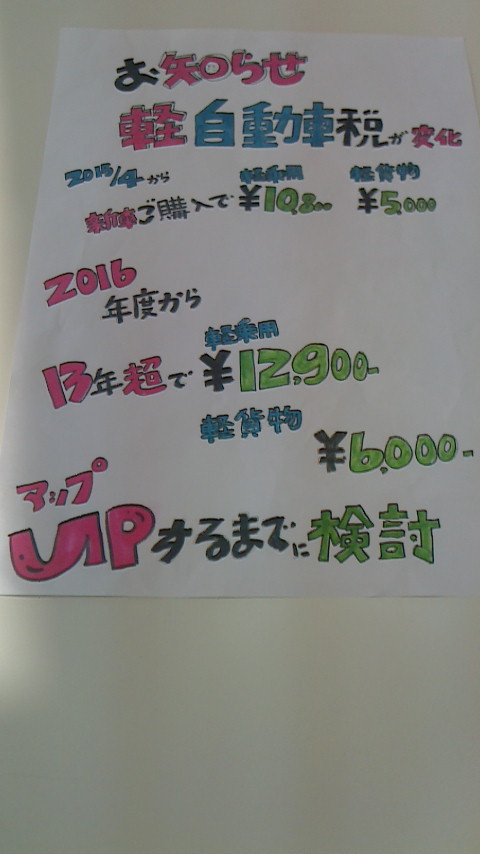 お知らせ
軽自動車税が変化
2015/4から 軽乗用 軽貨物
新車ご購入で ¥10,800 ¥5,000
2016
年度から
軽乗用
13年超で ¥12,900-
軽貨物
¥6,000-
アップ
UPするまでに検討